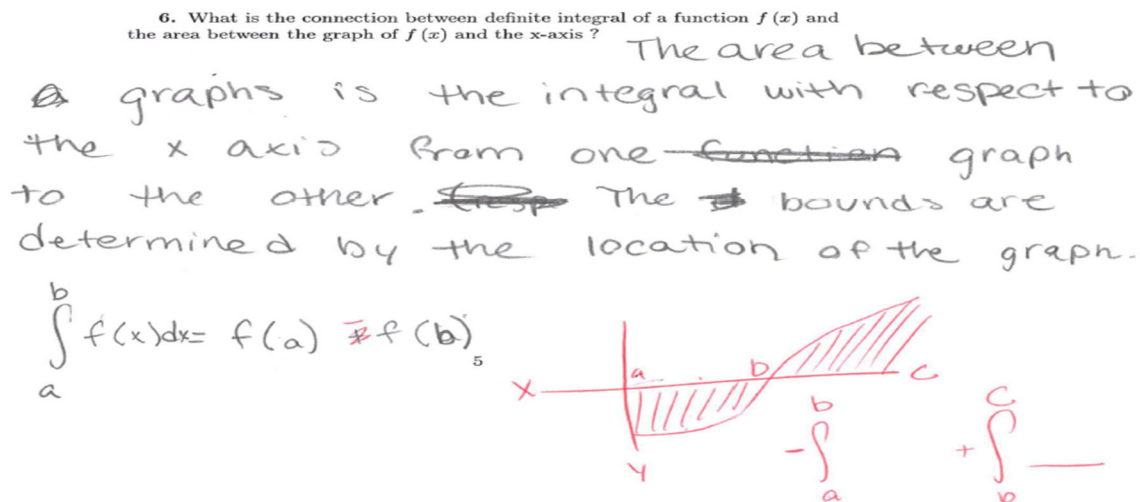 6. What is the connection between definite integral of a function f (x) and
the area between the graph of f (x) and the x-axis ?
The area between
graphs is the integral with respect to
the x axis from one function graph
to the other. (resp The bounds are
determined by the location of the graph.
b
∫ f(x)dx = f(a) - f(b)
a
5
X a b c
y
b c
-∫ +∫ __
a b